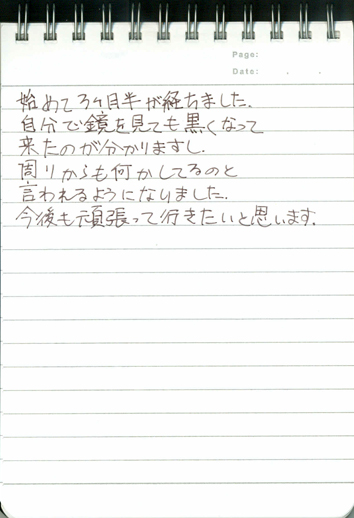 Page:
Date: . .
始めて3ヶ月半が経ちました.
自分で鏡を見ても黒くなって
来たのが分かりますし.
周りからも何かしてるのと
言われるようになりました.
今後も頑張って行きたいと思います.